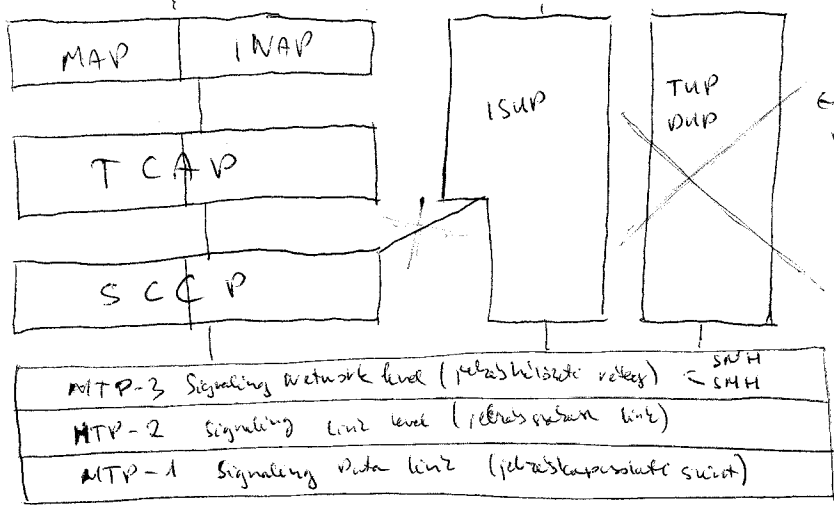 MAP INAP
ISUP
TUP
DUP
TCAP
SCCP
MTP-3 Signaling Network level (jelzéshálózati réteg) SNH
SMH
MTP-2 Signaling Link level ( link)
MTP-1 Signaling Data link (jelzéskapcsolati szint)